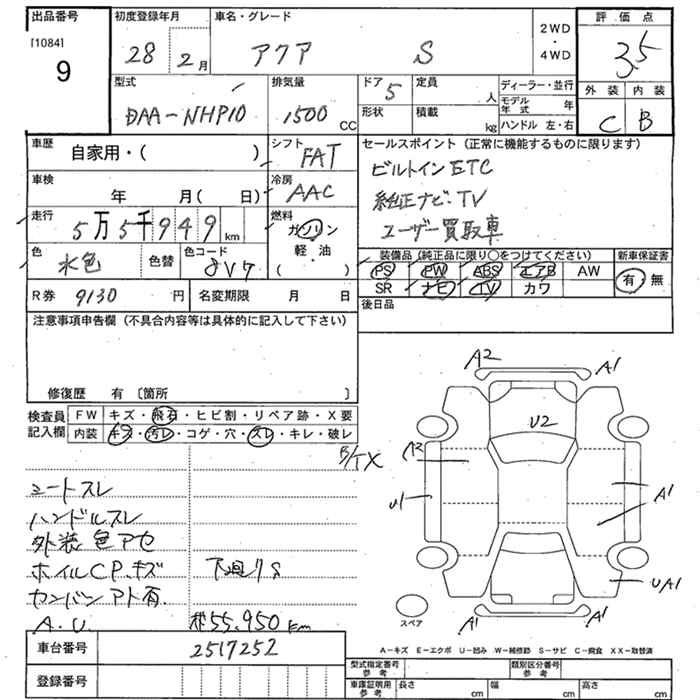 出品番号 初度登録年月 車名・グレード 2WD ・ 4WD 評価点
[1084] 9 28 2月 アクア S 3.5
型式 排気量 ドア 5 定員 人 ディーラー・並行 外装 内装
DAA-NHP10 1500 CC 形状 積載 kg モデル年式 年 C B
ハンドル 左・右
車歴 自家用・( ) シフト FAT セールスポイント (正常に機能するものに限ります)
車検 年 月( 日) 冷房 AAC ビルトインETC
走行 5万5千949km 燃料 ガソリン 純正ナビ・TV
軽・油 ユーザー買取車
色 水色 色替 色コード 8V7 ( )
装備品(純正品に限り○をつけてください) 新車保証書
PS PW ABS エアB AW 有・無
SR ナビ TV カワ
R券 9130円 名変期限 月 日 後日品
注意事項申告欄(不具合内容等は具体的に記入して下さい)
修復歴 有 〔箇所 〕
検査員記入欄 FW キズ・飛石・ヒビ割・リペア跡・X要
内装 キズ・汚レ・コゲ・穴・スレ・キレ・破レ
A2 A1
U2
B/TX
A2
U1 A1
UA1
A1 A1
スペア
シートスレ
ハンドルスレ
外装色アセ
ホイルCP.キズ 下廻りS
カンバンアト有.
A.U. 55,950km
A-キズ E-エクボ U-凹み W-補修跡 S-サビ C-腐食 XX-取替済
車台番号 2517252
型式指定番号 参考 類別区分番号 参考
登録番号 車庫証明用 参考 長さ cm 幅 cm 高さ cm